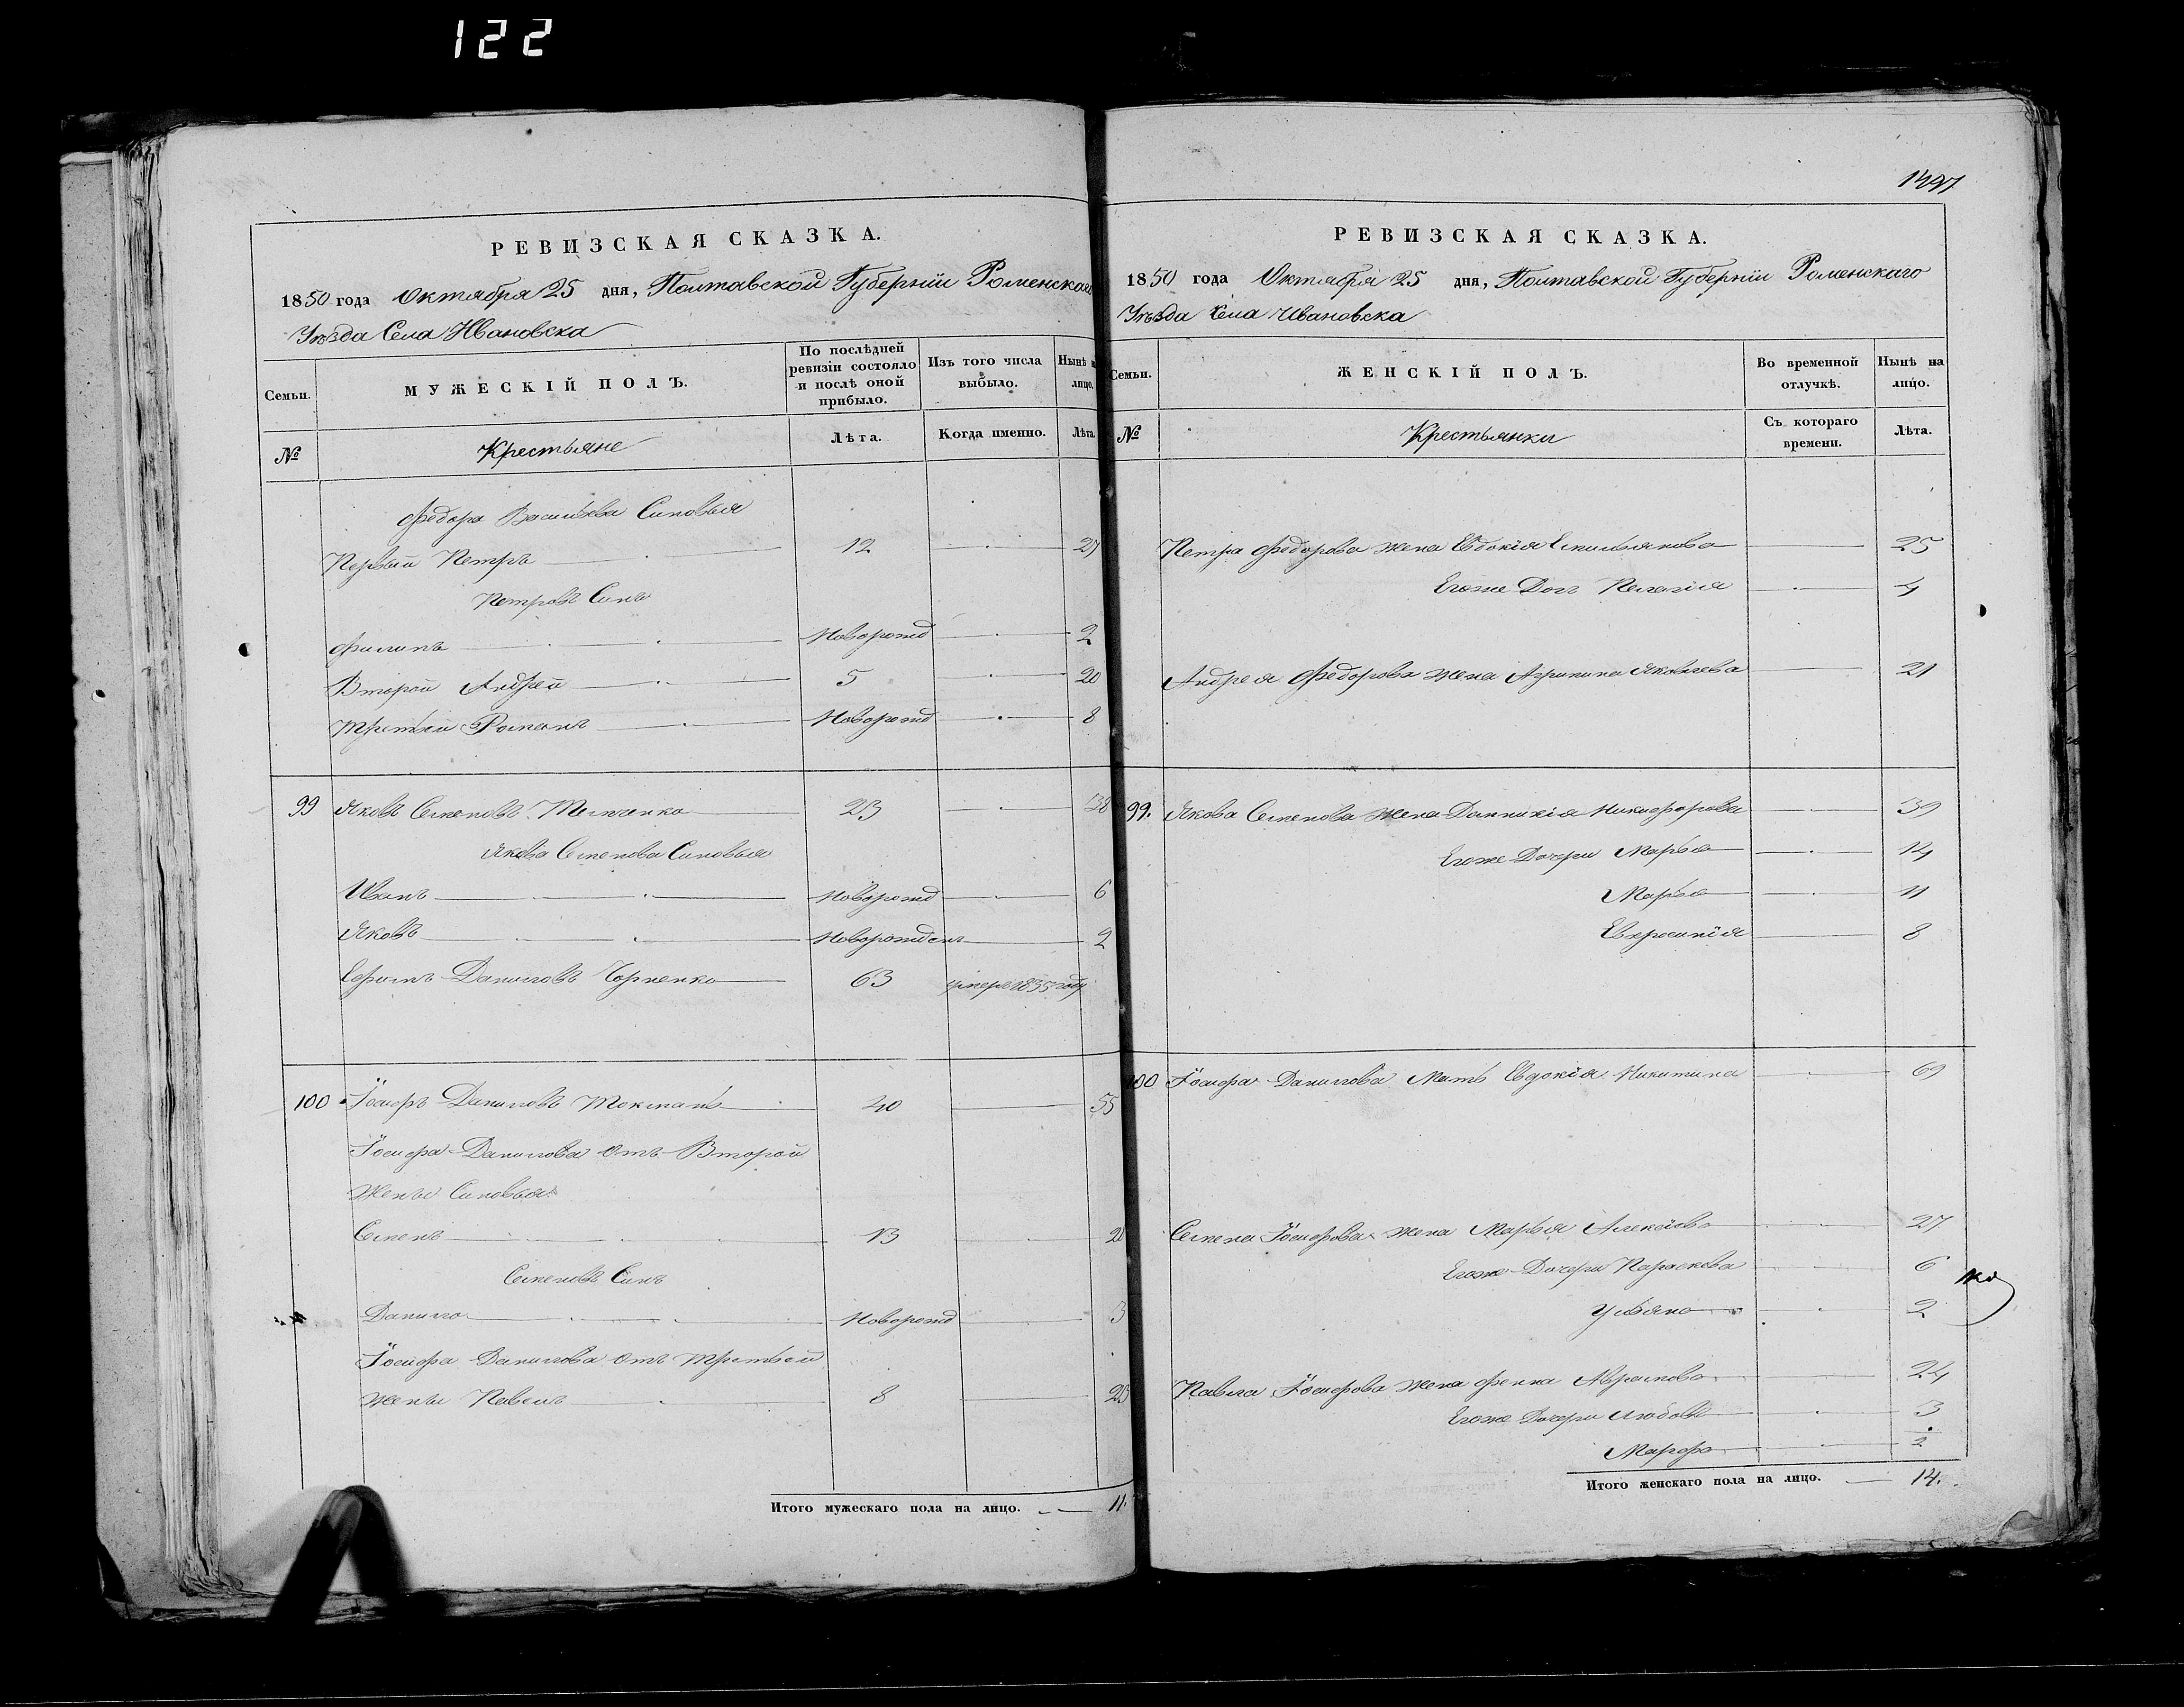 122
РЕВИЗСКАЯ СКАЗКА.
1850 года Октября 25 дня, Полтавской Губерніи Роменскаго
Уѣзда Села Ивановска
Семьи.
МУЖЕСКІЙ ПОЛЪ.
По послѣдней ревизіи состояло и послѣ оной прибыло.
Изъ того числа выбыло.
Нынѣ на лицо.
№
Крестьяне
Лѣта.
Когда именно.
Лѣта.
Федора Васильева Синовья
Первый Петръ 12 27
Петровъ Синъ
Филипъ Новорожд 2
Второй Андрей 5 20
Третій Романъ Новорожд 8
99 Яковъ Семеновъ 23 38
Якова Семенова Синовья
Иванъ Новорожд 6
Яковъ Новорожденъ 2
Ефимъ Даниловъ 63 умеръ 1835 году
100 Іосифъ Даниловъ Токмань 40 55
Іосифа Данилова отъ Второй
Жены Синовья
Семенъ 13 28
Семеновъ Синъ
Данило Новорожд 3
Іосифа Данилова отъ третьей
жены Павелъ 8 23
Итого мужескаго пола на лицо. 11.
РЕВИЗСКАЯ СКАЗКА.
1850 года Октября 25 дня, Полтавской Губерніи Роменскаго
Уѣзда Села Ивановска
Семьи.
ЖЕНСКІЙ ПОЛЪ.
Во временной отлучкѣ.
Нынѣ на лицо.
№
Крестьянки
Съ котораго времени.
Лѣта.
Петра Федорова жена Евдокія Емильянова 25
Егоже Доч Пелагія 4
Андрея Федорова жена Агрипина Яковлева 21
99. Якова Семенова жена Никифорова 39
Егоже Дочери Марья 14
Марья 11
Евхросинія 8
100 Іосифа Данилова Мать Евдокія Никитина 69
Семена Іосифова жена Марья Алексѣева 27
Егоже Дочери Параскева 6
Ульяна 2
Павла Іосифова жена Фенна Абрамова 24
Егоже Дочери Любовь 3
Марфа 2
Итого женскаго пола на лицо. 14.